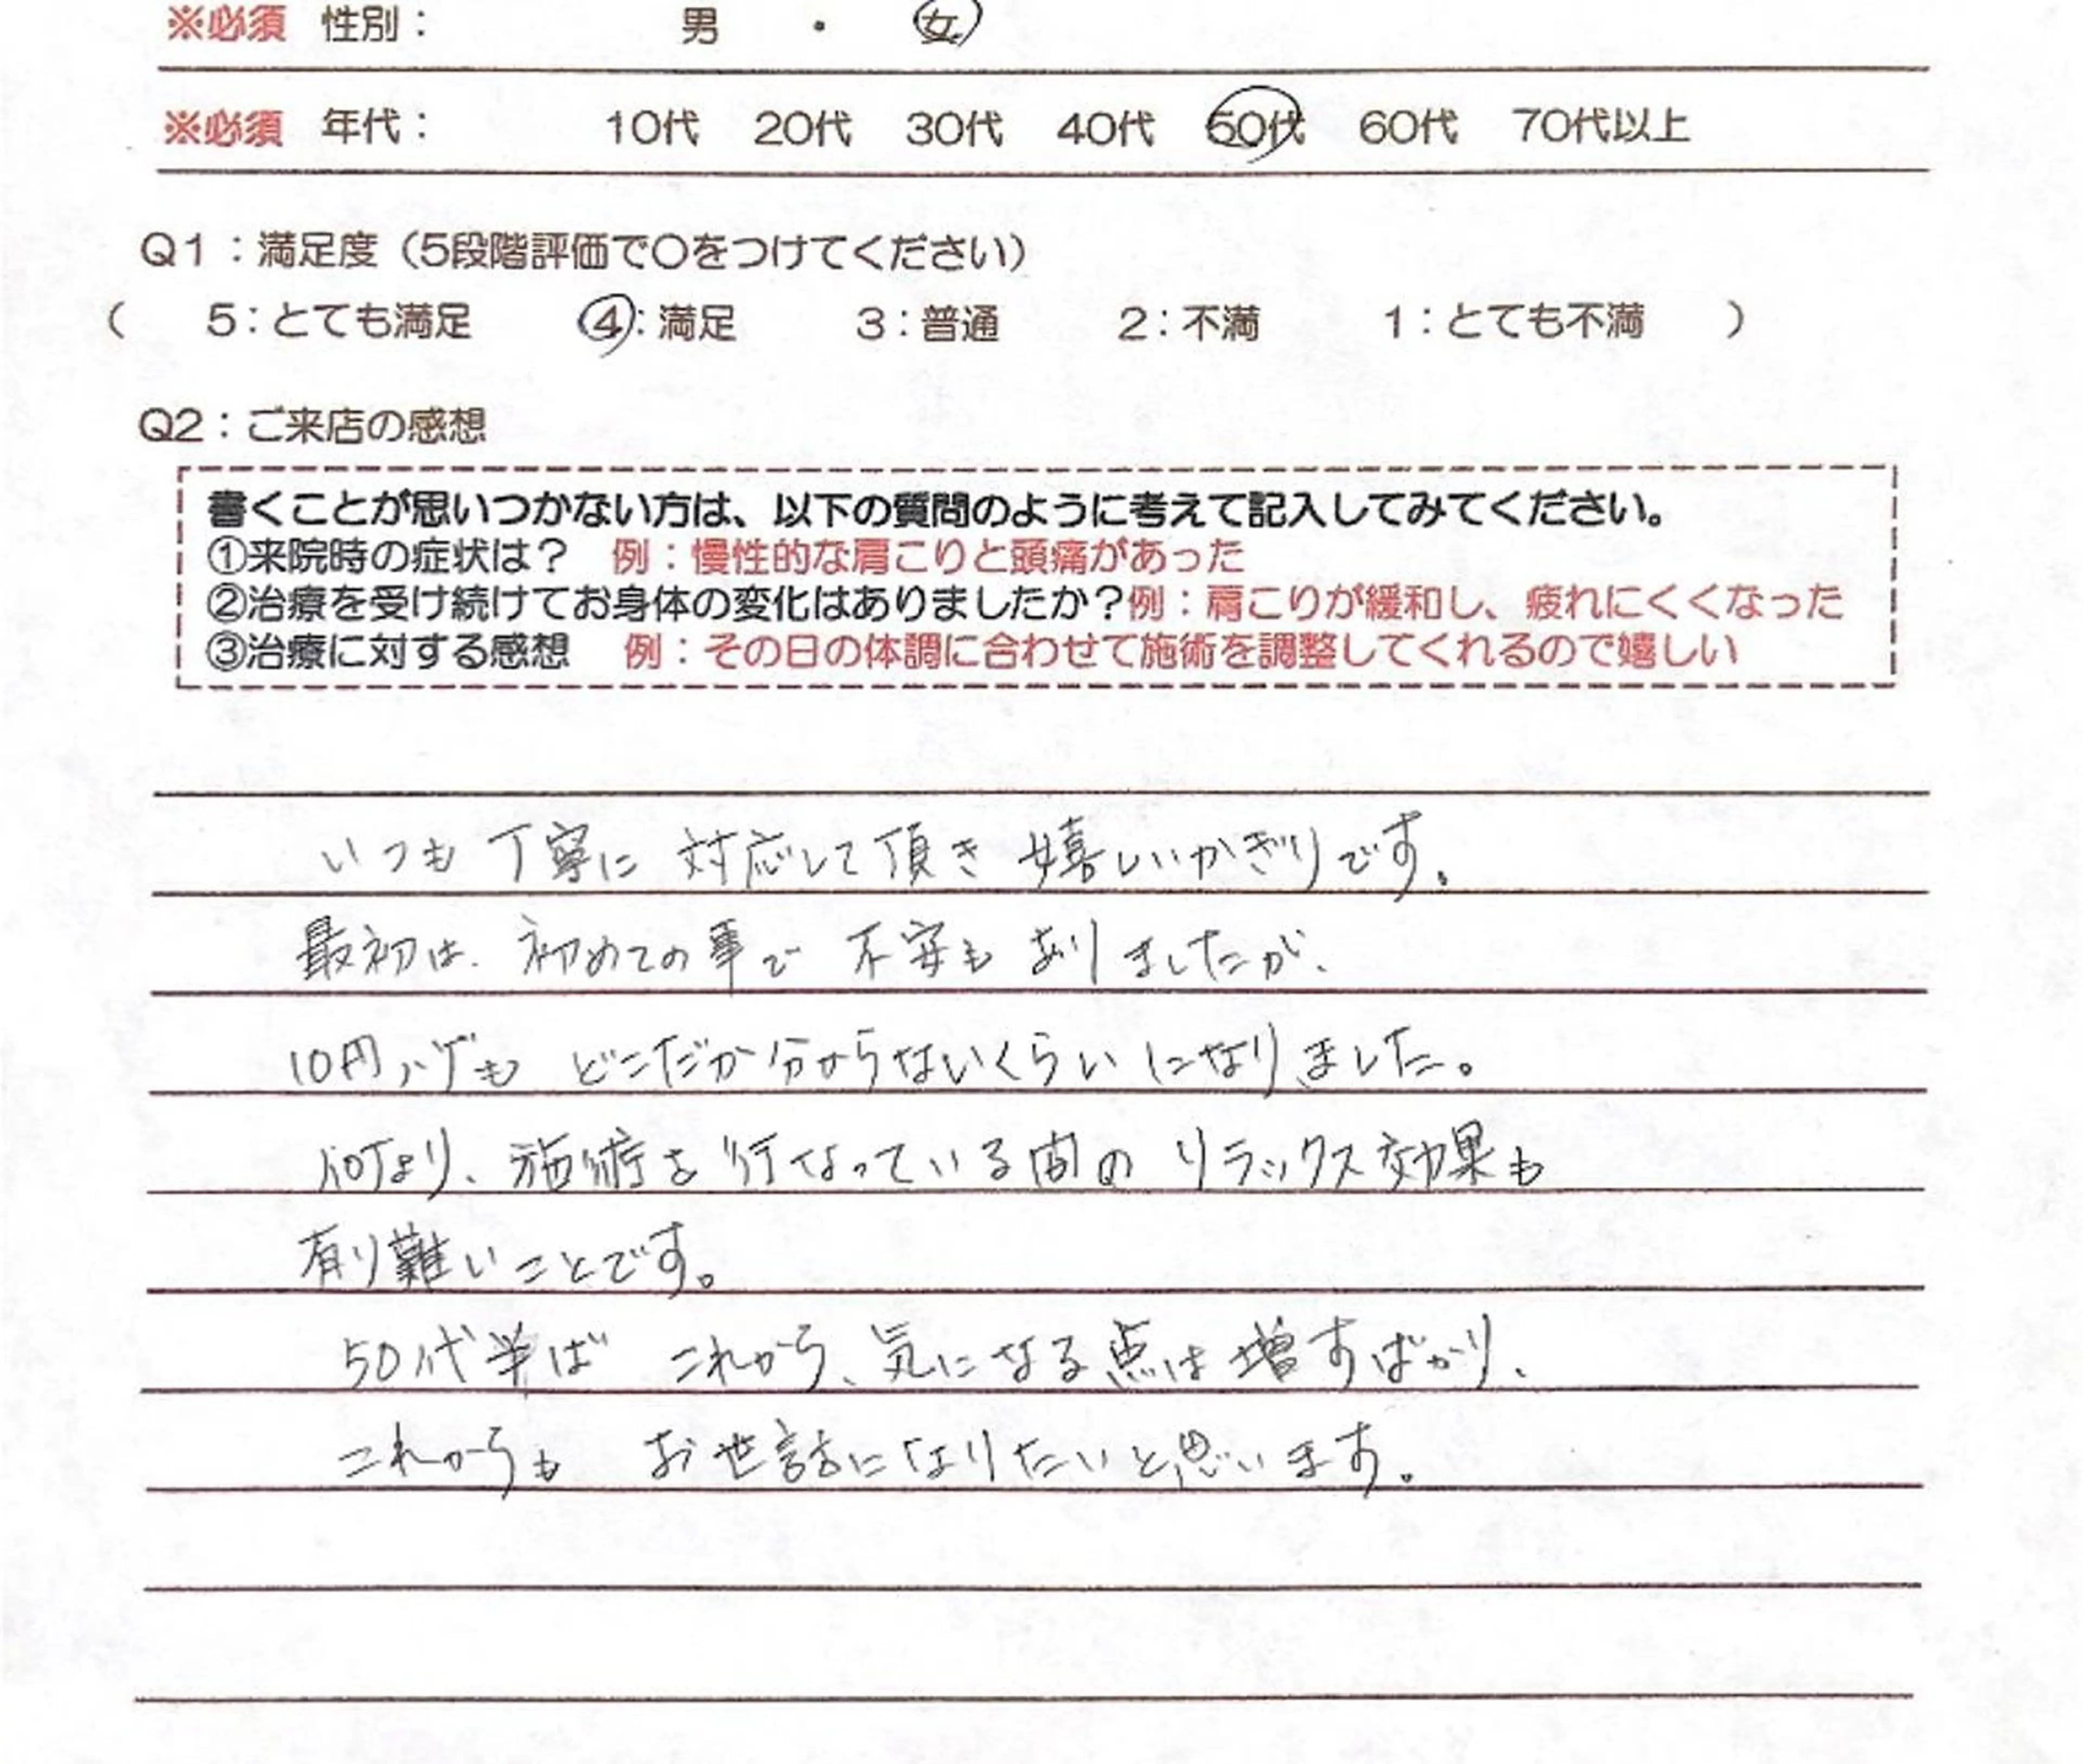 ※必須 性別： 男 ・ 女
※必須 年代： 10代 20代 30代 40代 50代 60代 70代以上
Q1：満足度（5段階評価で〇をつけてください）
（ 5：とても満足 4：満足 3：普通 2：不満 1：とても不満 ）
Q2：ご来店の感想
書くことが思いつかない方は、以下の質問のように考えて記入してみてください。
①来院時の症状は？ 例：慢性的な肩こりと頭痛があった
②治療を受け続けてお身体の変化はありましたか？例：肩こりが緩和し、疲れにくくなった
③治療に対する感想 例：その日の体調に合わせて施術を調整してくれるので嬉しい
いつも丁寧に対応して頂き嬉しいかぎりです。
最初は、初めての事で不安もありましたが、
10円ハゲもどこだか分からないくらいになりました。
何より、施術を行なっている間のリラックス効果も
有り難いことです。
50代半ば これから、気になる点は増すばかり、
これからも お世話になりたいと思います。